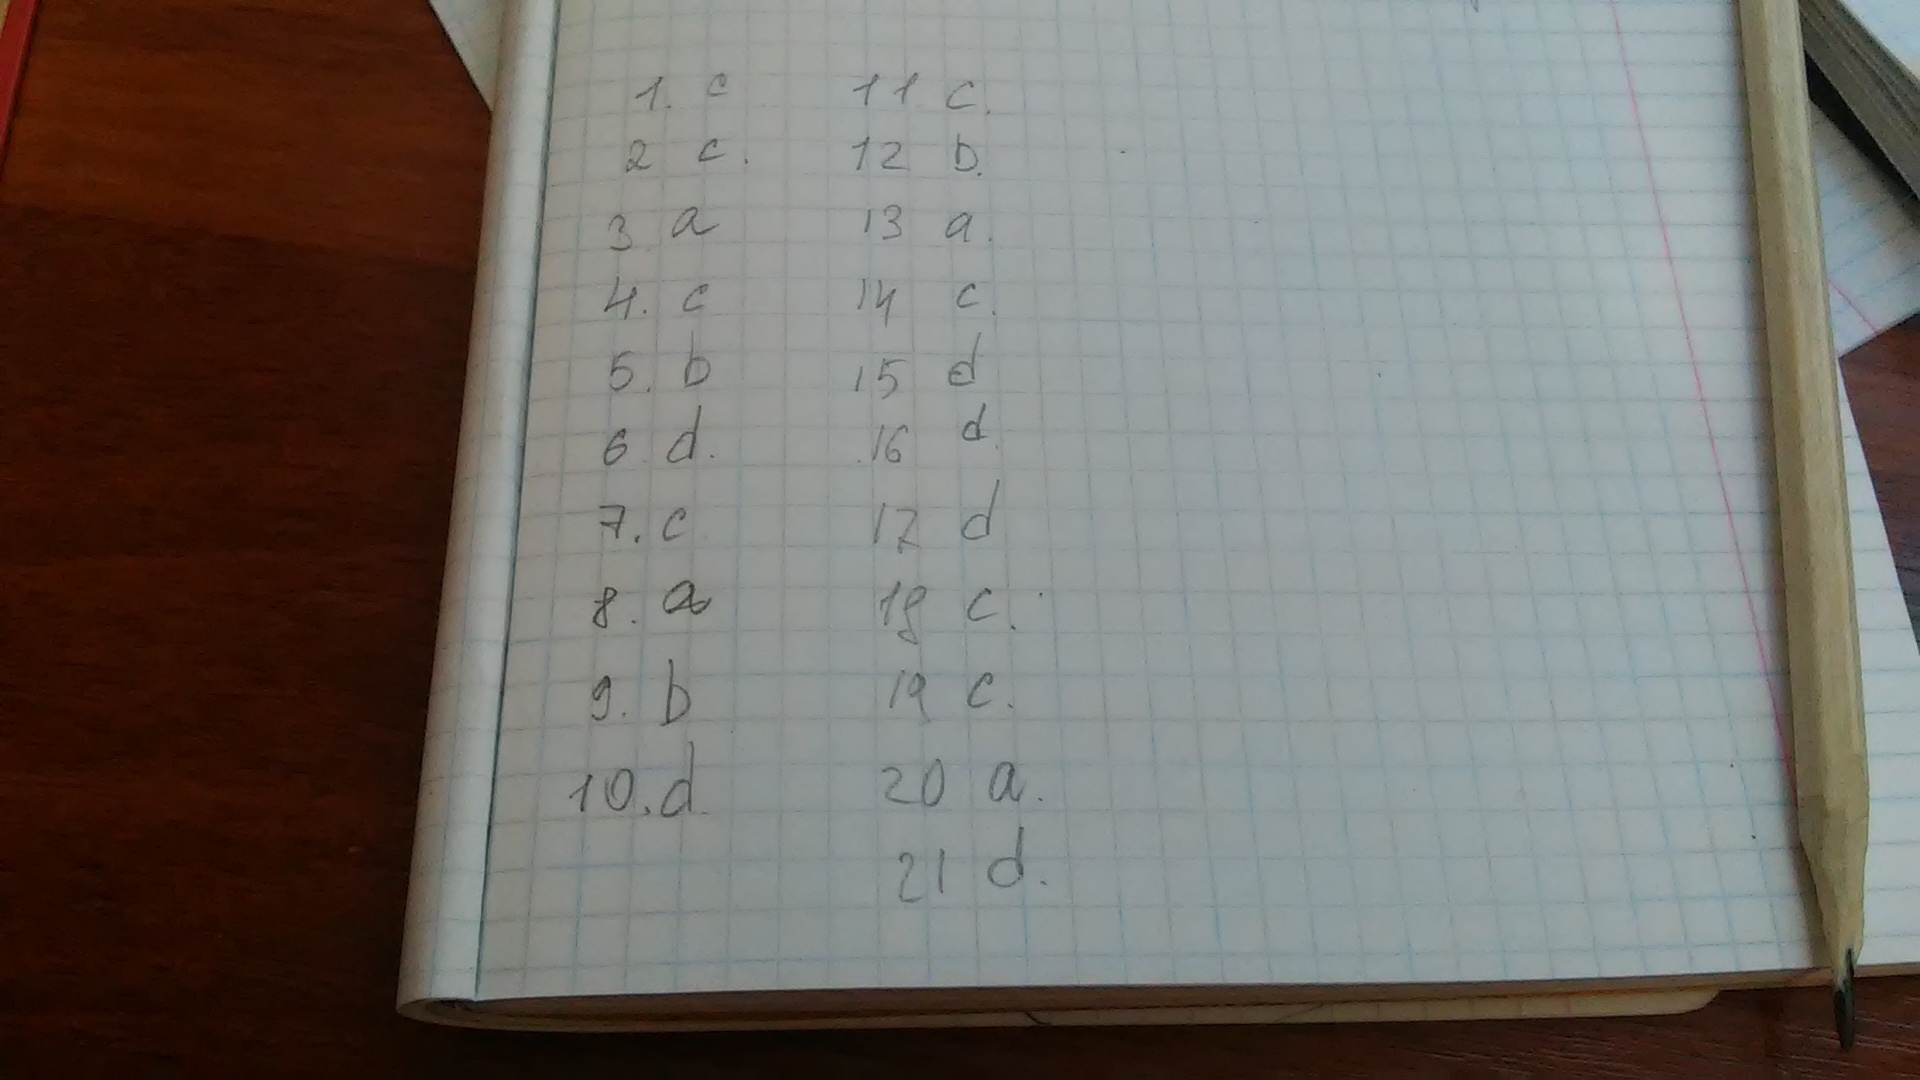 1. c
2 c.
3 a
4. c
5. b
6 d.
7. c
8. a
9. b
10. d.
11 c.
12 b.
13 a.
14 c.
15 d
16 d.
17 d
18 c.
19 c.
20 a.
21 d.